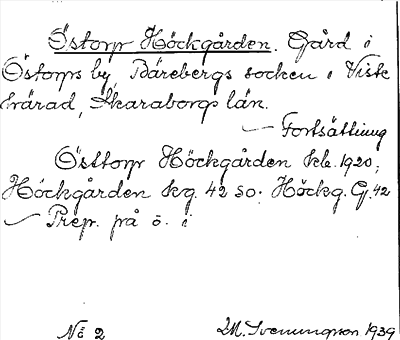 Östorp Höckgården. Gård i
Östorps by, Bärebergs socken i Viste
härad, Skaraborgs län.
— Fortsättning
Östtorp Höckgården kb. 1920;
Höckgården kg. 42 SO; Höckg. G. 42
— Prep. på ö. i
No 2 M. Svenungson 1939